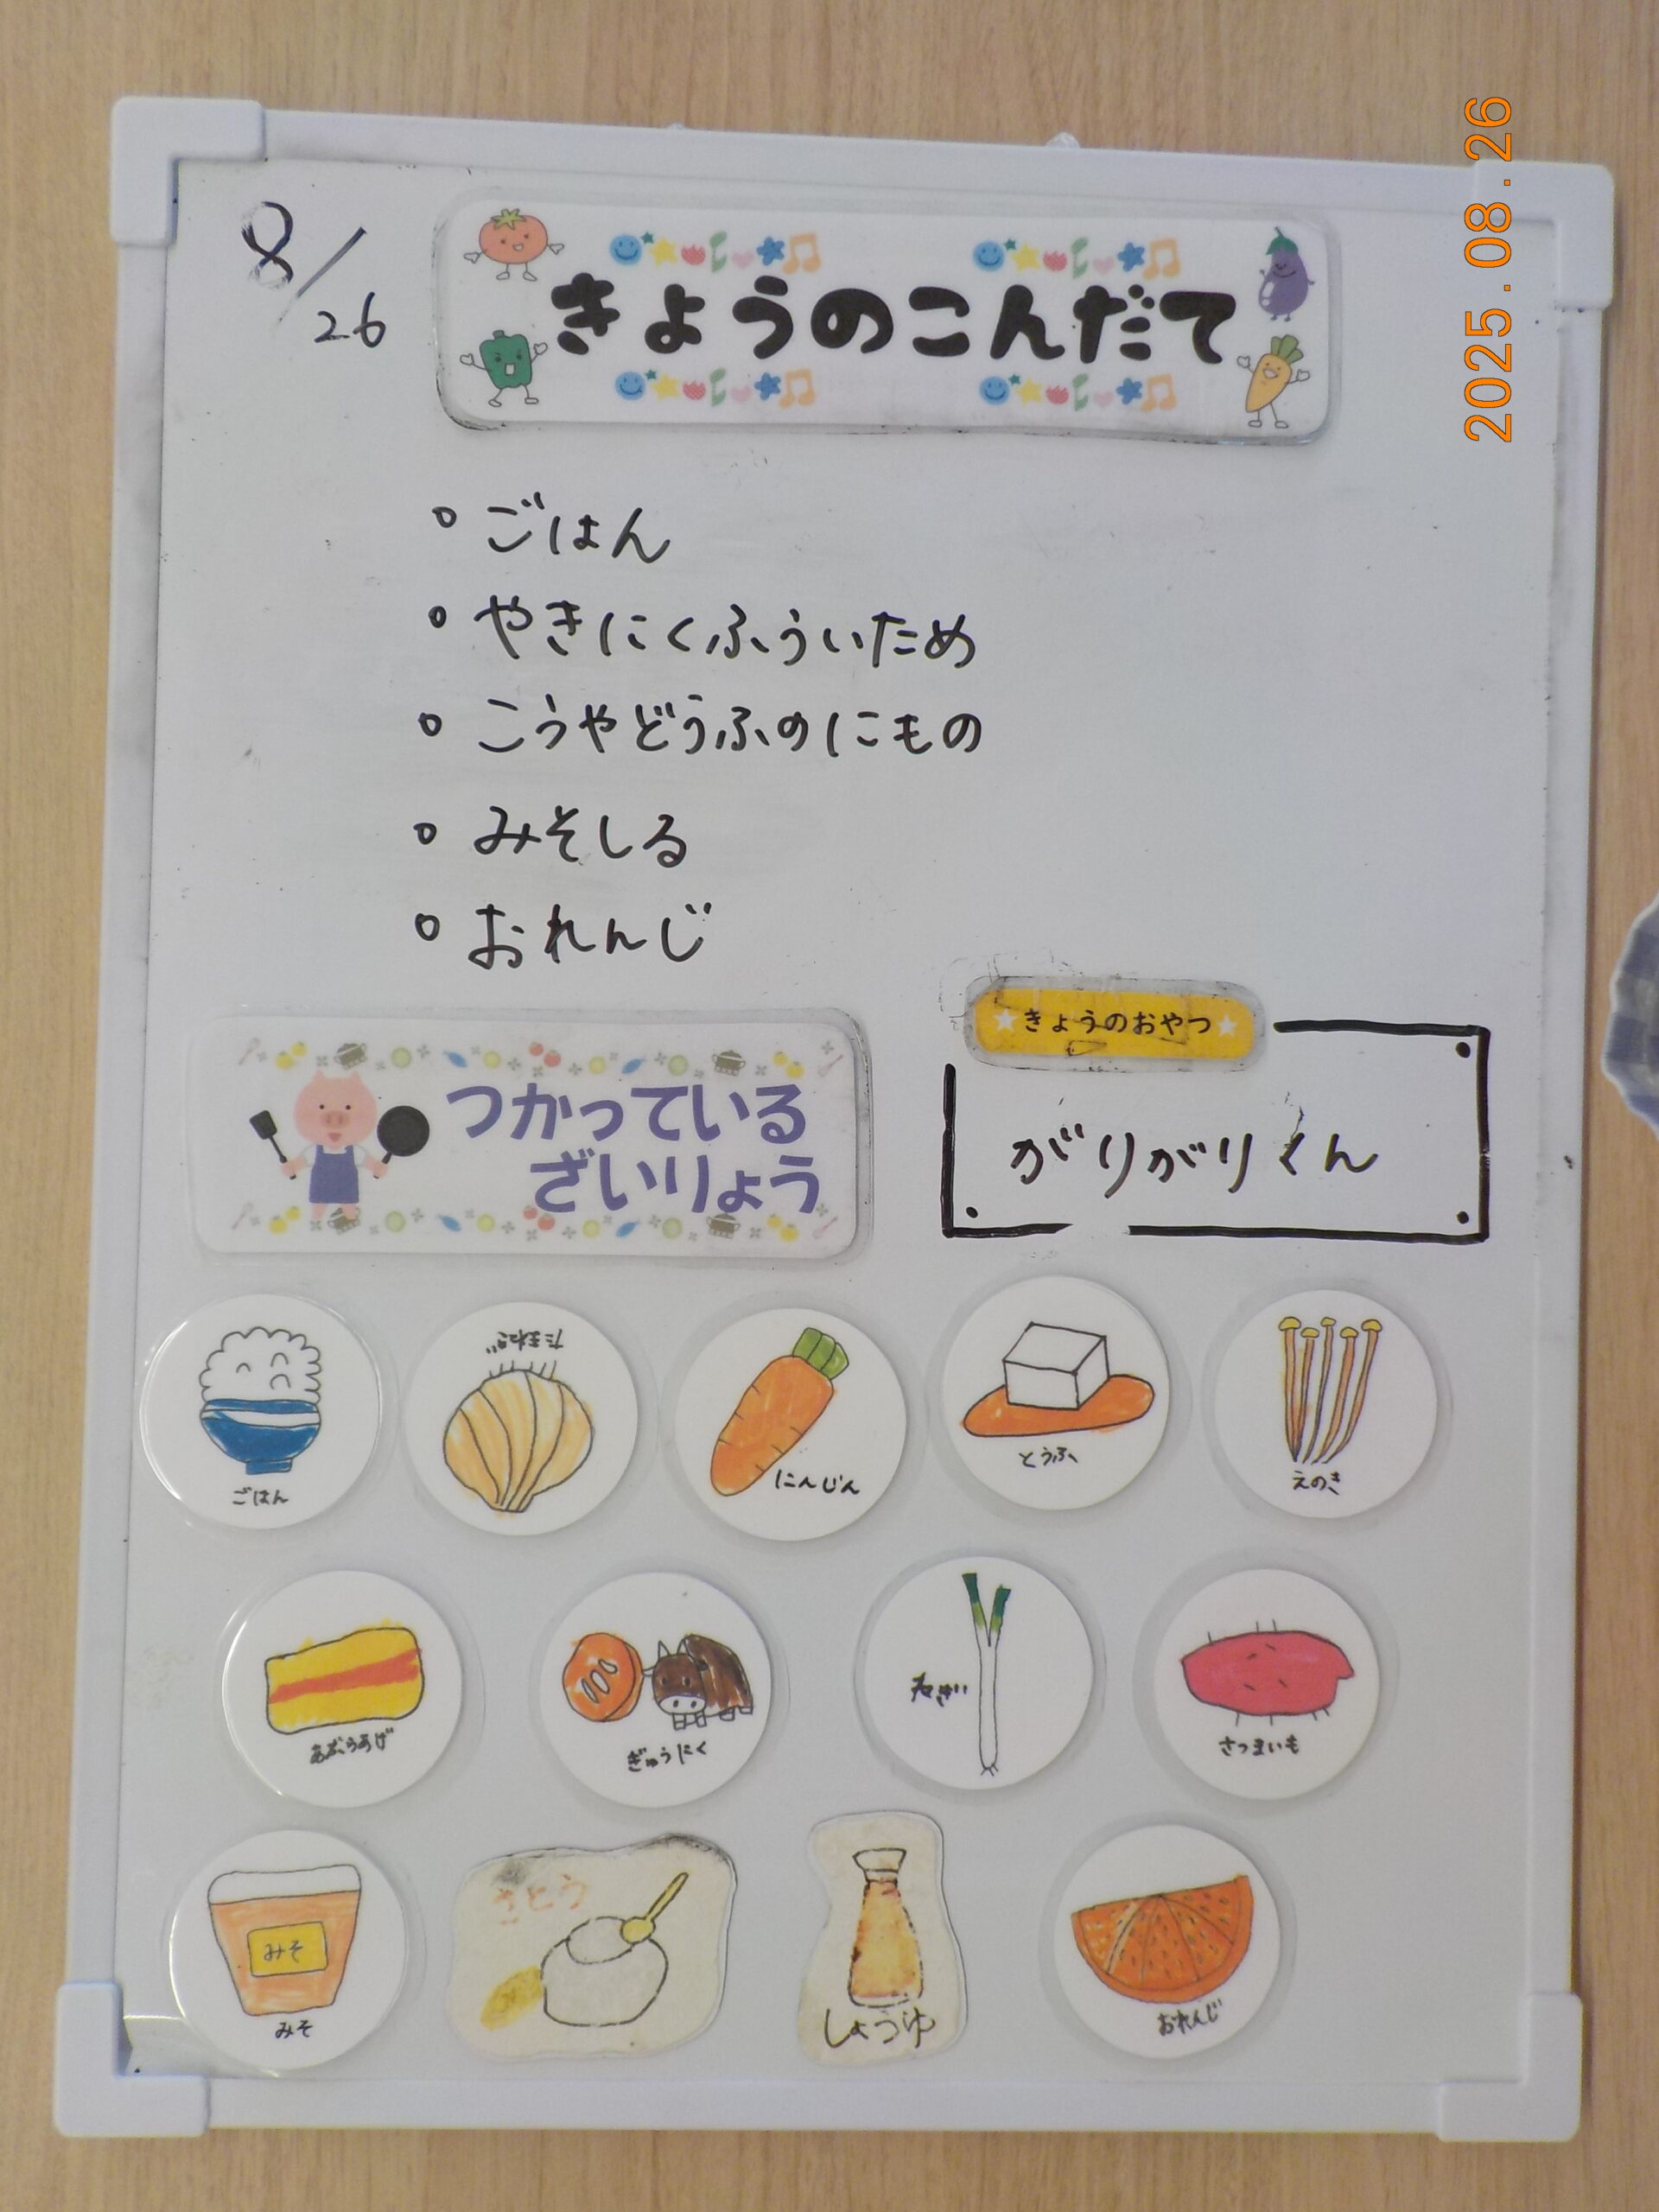 2025.08.26
8/26
きょうのこんだて
ごはん
やきにくふういため
こうやどうふのにもの
みそしる
おれんじ
きょうのおやつ
がりがりくん
つかっている
ざいりょう
ごはん
たまねぎ
にんじん
とうふ
えのき
あぶらあげ
ぎゅうにく
ねぎ
さつまいも
みそ
みそ
さとう
しょうゆ
おれんじ